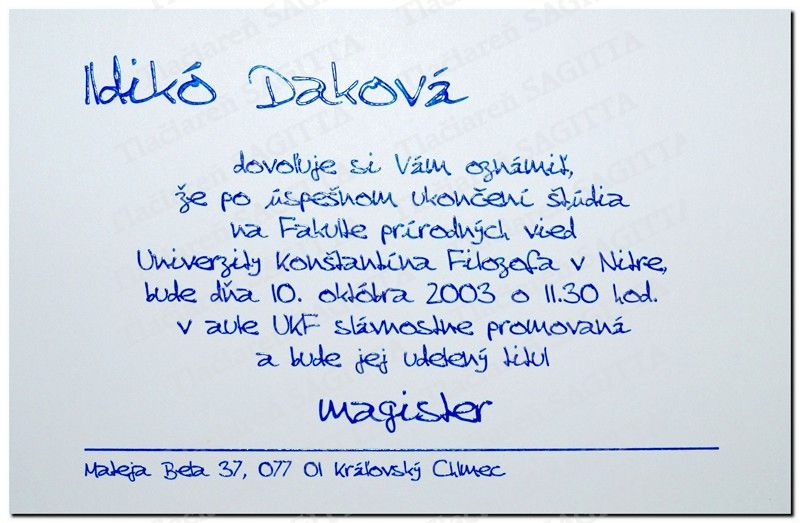 Ildikó Daková
dovoľuje si Vám oznámiť,
že po úspešnom ukončení štúdia
na Fakulte prírodných vied
Univerzity Konštantína Filozofa v Nitre,
bude dňa 10. októbra 2003 o 11.30 hod.
v aule UKF slávnostne promovaná
a bude jej udelený titul
magister
Mateja Bela 37, 077 01 Kráľovský Chlmec
Tlačiareň SAGITTA